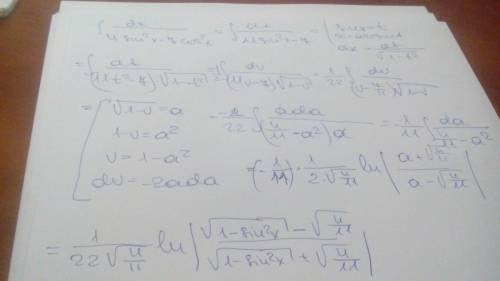 ∫ dx / (4 sin²x - 7 cos²x) = ∫ dx / (11 sin²x - 7) = | sin x = t
x = arcsin t
dx = dt / √(1-t²) |
= ∫ dt / ((11t² - 7) √(1-t²)) = ∫ dv / ((11v - 7) √(1-v)) = 1/22 ∫ dv / ((v - 7/11) √(1-v))
= [ √(1-v) = a
1-v = a²
v = 1-a²
dv = -2ada
= -2/22 ∫ ada / ((4/11 - a²) a) = -1/11 ∫ da / (4/11 - a²)
= (-1/11) · 1 / (2·√(4/11)) ln | (a + √(4/11)) / (a - √(4/11)) |
= 1 / (22 √(4/11)) ln | (√(1-sin²x) - √(4/11)) / (√(1-sin²x) + √(4/11)) |